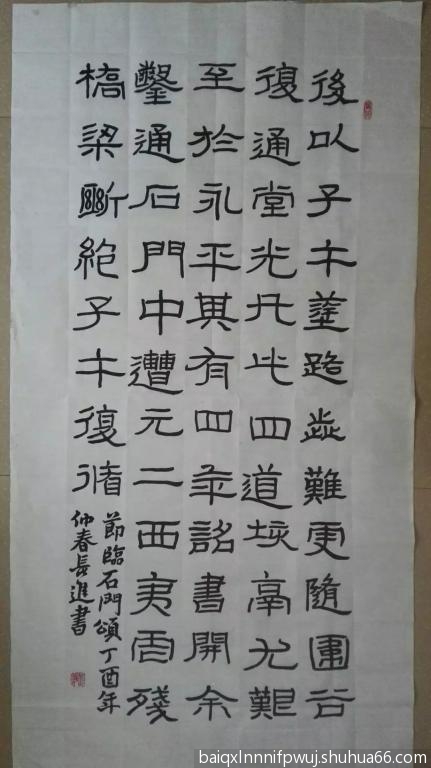 後以子午塗路歰難更隨圍谷
復通堂光凡此四道垓鬲尤艱
至於永平其有四年詔書開余
鑿通石門中遭元二西夷虐殘
橋梁斷絶子午復循
節臨石門頌丁酉年
仲春長進書
baiqxlnnnifpwuj.shuhua66.com